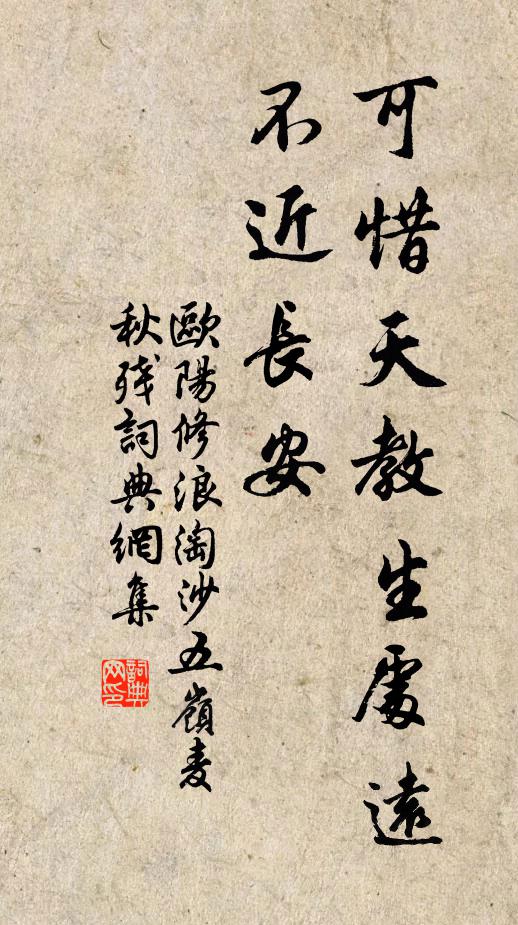 可惜天教生處遠
不近長安
歐陽修浪淘沙五嶺麦
秋殘詞典網集
詞典
网印